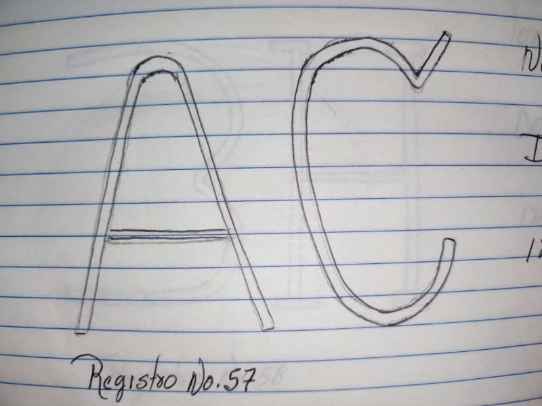 AC
Registro No. 57